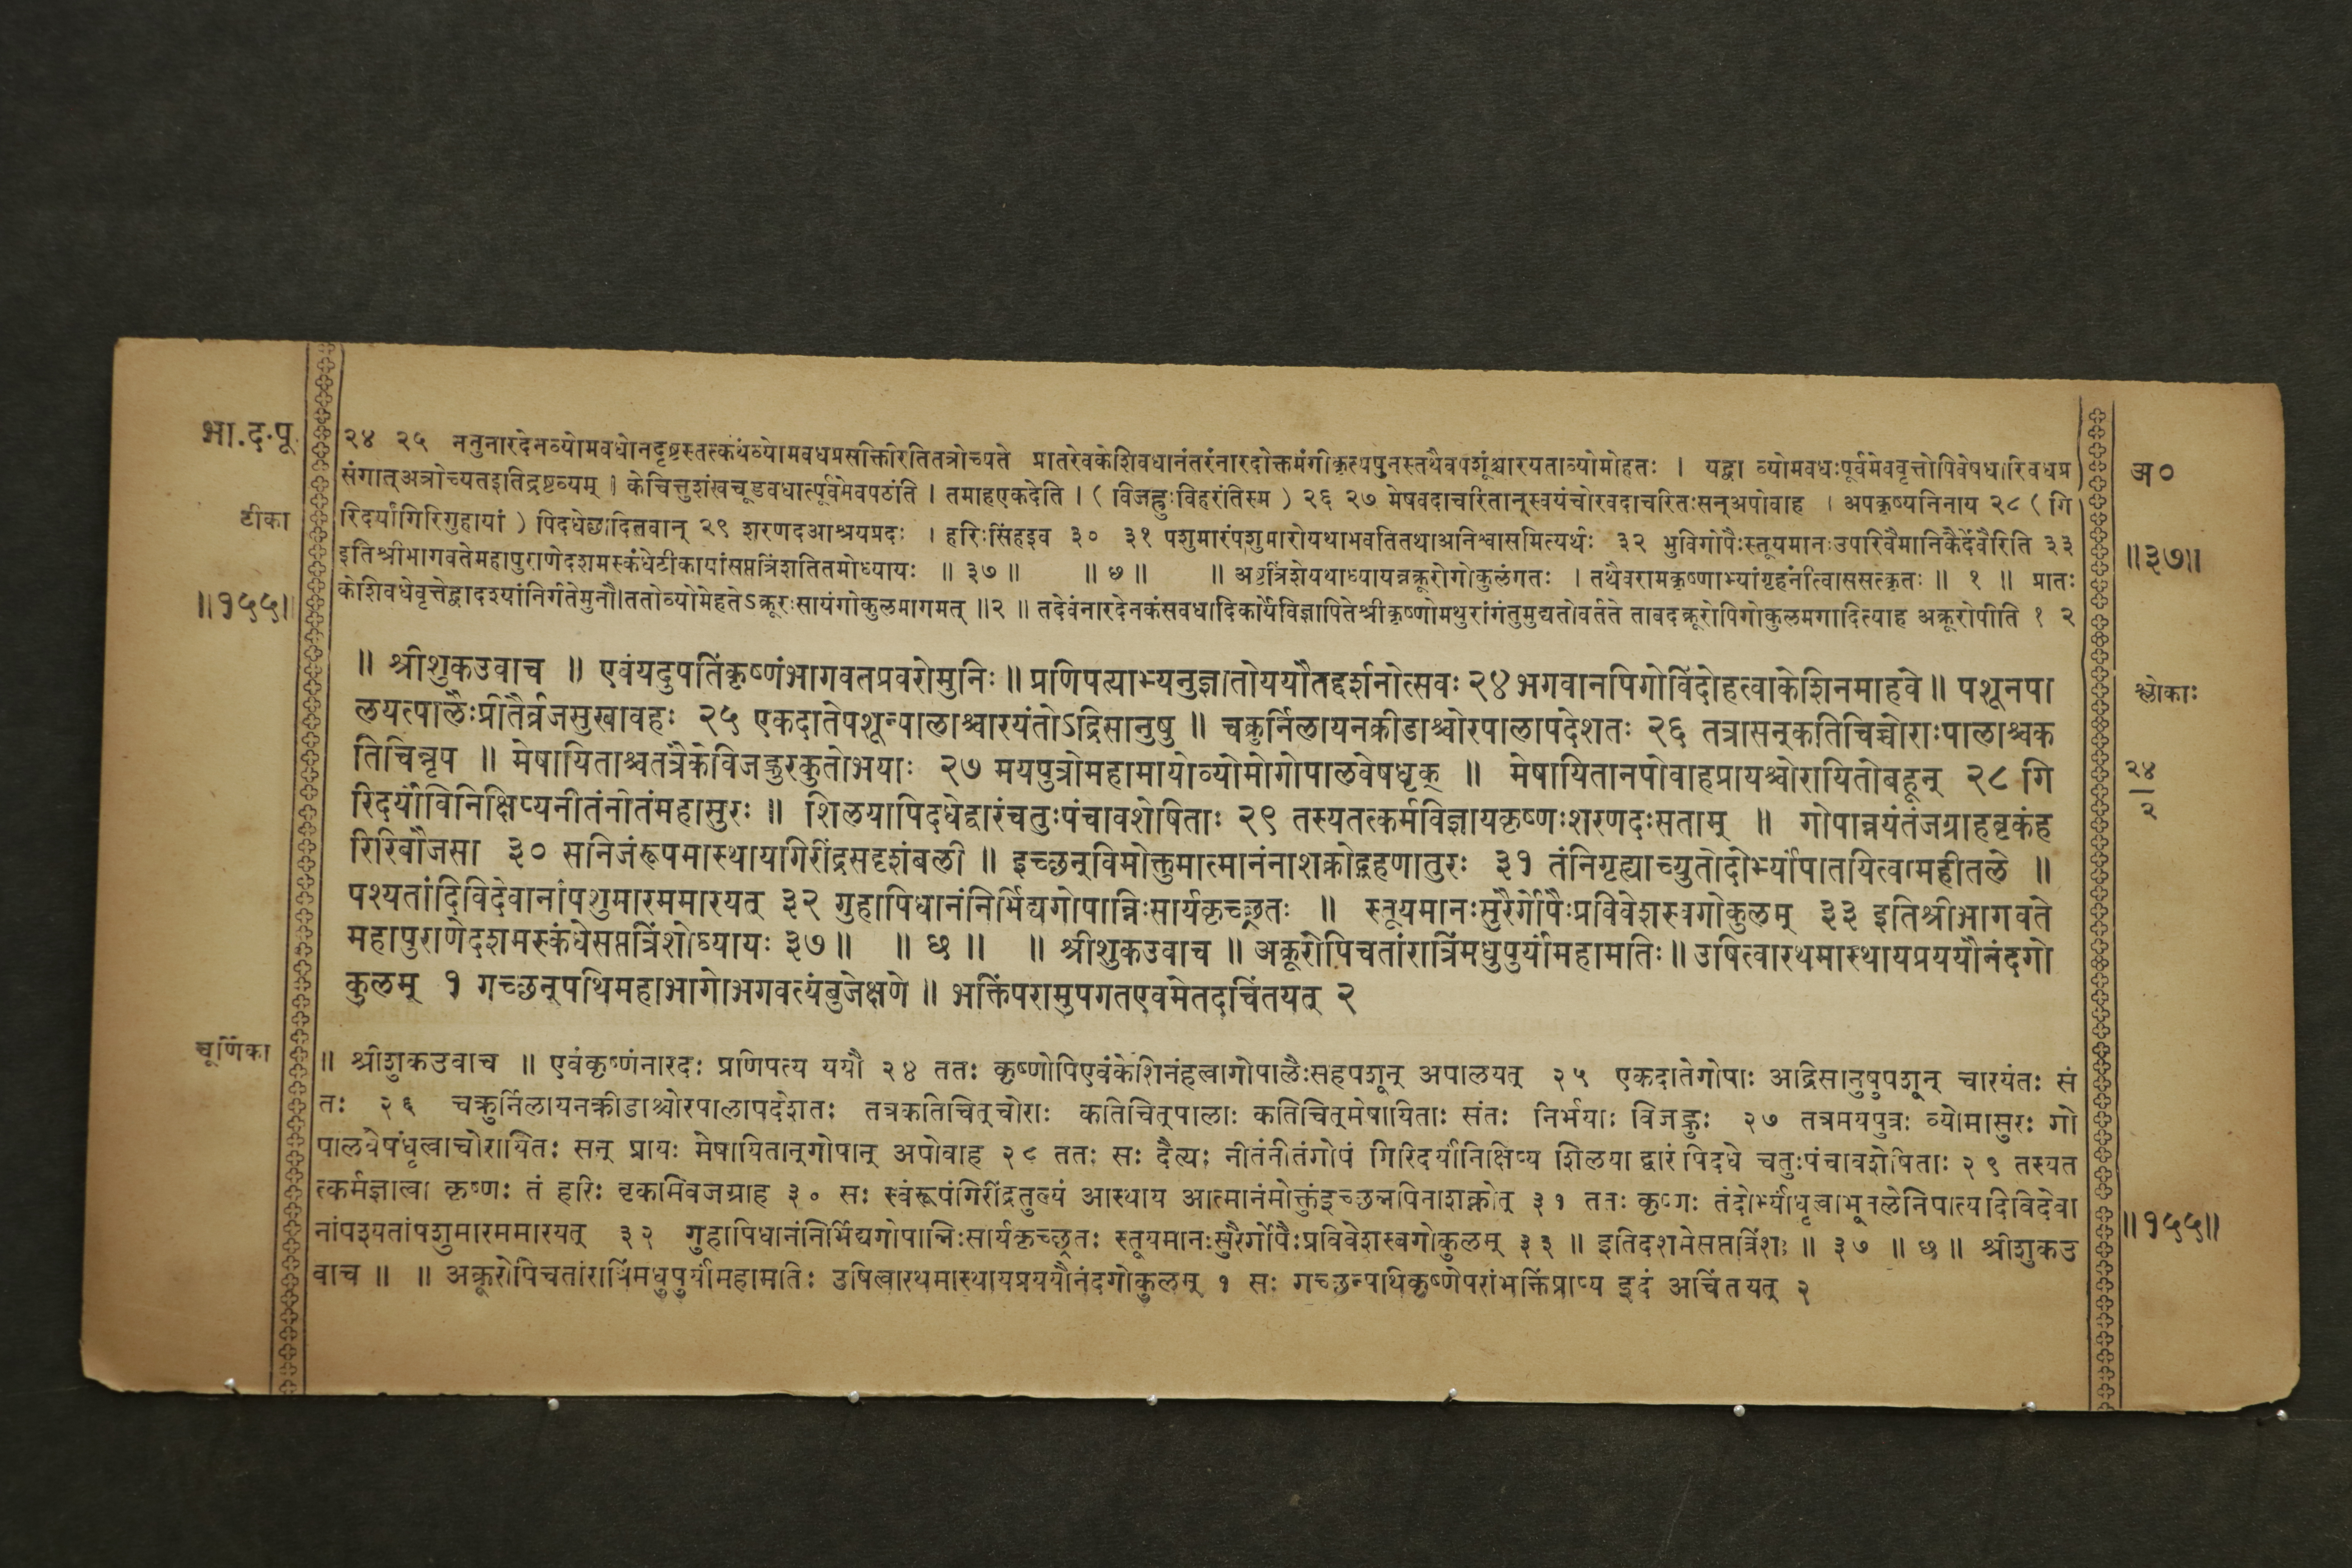 भा.द.पू.
टीका
॥१५५॥
२४ २५ ननुनारदेनव्योमवधोनदृष्टस्तत्कथंव्योमवधप्रसक्तिरितितत्रोच्यते प्रातरेवकेशिवधानंतरंनारदोक्तमंगीकृत्यपुनस्तथैवपशूंश्चारयताव्योमोहतः । यद्वा व्योमवधःपूर्वमेववृत्तोपिवेषधारिवधप्र
संगात्अत्रोच्यतइतिद्रष्टव्यम् । केचित्तुशंखचूडवधात्पूर्वमेवपठांति । तमाहएकदेति । ( विजह्रुःविहरंतिस्म ) २६ २७ मेषवदाचरितान्स्वयंचोरवदाचरितःसन्अपोवाह । अपकृष्यनिनाय २८ ( गि
रिदर्यांगिरिगुहायां ) पिदधेछादितवान् २९ शरणदआश्रयप्रदः । हरिःसिंहइव ३० ३१ पशुमारंपशुमारोयथाभवतितथाअनिश्वासमित्यर्थः ३२ भुविगोपैःस्तूयमानःउपरिवैमानिकैर्देवैरिति ३३
इतिश्रीभागवतेमहापुराणेदशमस्कंधेटीकायांसप्तत्रिंशतितमोध्यायः ॥ ३७ ॥ ॥ छ ॥ ॥ अष्टत्रिंशेयथाध्यायन्नक्रूरोगोकुलंगतः । तथैवरामकृष्णाभ्यांगृहंनीत्वाससत्कृतः ॥ १ ॥ प्रातः
केशिवधेवृत्तेद्वादश्यांनिर्गतेमुनौ।ततोव्योमेहतेऽक्रूरःसायंगोकुलमागमत् ॥२ ॥ तदेवंनारदेनकंसवधादिकार्येविज्ञापितेश्रीकृष्णोमथुरांगंतुमुद्यतोवर्तते तावदक्रूरोपिगोकुलमगादित्याह अक्रूरोपीति १ २
अ०
॥३७॥
॥ श्रीशुकउवाच ॥ एवंयदुपतिंकृष्णंभागवतप्रवरोमुनिः ॥ प्रणिपत्याभ्यनुज्ञातोययौतद्दर्शनोत्सवः २४ भगवानपिगोविंदोहत्वाकेशिनमाहवे ॥ पशूनपा
लयत्पालैःप्रीतैर्व्रजसुखावहः २५ एकदातेपशून्पालाश्चारयंतोऽद्रिसानुषु ॥ चक्रुर्निलायनक्रीडाश्चोरपालापदेशतः २६ तत्रासन्कतिचिच्चोराःपालाश्चक
तिचिन्नृप ॥ मेषायिताश्चतत्रैकेविजह्रुरकुतोभयाः २७ मयपुत्रोमहामायोव्योमोगोपालवेषधृक् ॥ मेषायितानपोवाहप्रायश्चोरायितोबहून् २८ गि
रिदर्यांविनिक्षिप्यनीतंनीतंमहासुरः ॥ शिलयापिदधेद्वारंचतुःपंचावशेषिताः २९ तस्यतत्कर्मविज्ञायकृष्णःशरणदःसताम् ॥ गोपान्नयंतंजग्राहवृकंह
रिरिवौजसा ३० सनिजंरूपमास्थायगिरींद्रसदृशंबली ॥ इच्छन्विमोक्तुमात्मानंनाशक्नोद्ग्रहणातुरः ३१ तंनिगृह्याच्युतोदोर्भ्यांपातयित्वामहीतले ॥
पश्यतांदिविदेवानांपशुमारममारयत् ३२ गुहापिधानंनिर्भिद्यगोपान्निःसार्यकृच्छ्रतः ॥ स्तूयमानःसुरैर्गोपैःप्रविवेशस्वगोकुलम् ३३ इतिश्रीभागवते
महापुराणेदशमस्कंधेसप्तत्रिंशोध्यायः ३७ ॥ ॥ छ ॥ ॥ श्रीशुकउवाच ॥ अक्रूरोपिचतांरात्रिंमधुपुर्यांमहामतिः ॥ उषित्वारथमास्थायप्रययौनंदगो
कुलम् १ गच्छन्पथिमहाभागोभगवत्यंबुजेक्षणे ॥ भक्तिंपरामुपगतएवमेतदचिंतयत् २
श्लोकाः
२४
२
चूर्णिका
॥ श्रीशुकउवाच ॥ एवंकृष्णंनारदः प्रणिपत्य ययौ २४ ततः कृष्णोपिएवंकेशिनंहत्वागोपालैःसहपशून् अपालयत् २५ एकदातेगोपाः आद्रिसानुषुपशून् चारयंतः सं
तः २६ चक्रुर्निलायनक्रीडाश्चोरपालापदेशतः तत्रकतिचित्चोराः कतिचित्पालाः कतिचित्मेषायिताः संतः निर्भयाः विजह्रुः २७ तत्रमयपुत्रः व्योमासुरः गो
पालवेषंधृत्वाचोरायितः सन् प्रायः मेषायितान्गोपान् अपोवाह २८ ततः सः दैत्यः नीतंनीतंगोपं गिरिदर्यांनिक्षिप्य शिलया द्वारं पिदधे चतुःपंचावशेषिताः २९ तस्यत
त्कर्मज्ञात्वा कृष्णः तं हरिः वृकमिवजग्राह ३० सः स्वंरूपंगिरींद्रतुल्यं आस्थाय आत्मानंमोक्तुंइच्छन्नपिनाशक्नोत् ३१ ततः कृष्णः तंदोर्भ्यांधृत्वाभूतलेनिपात्यदिविदेवा
नांपश्यतांपशुमारममारयत् ३२ गुहापिधानंनिर्भिद्यगोपान्निःसार्यकृच्छ्रतः स्तूयमानःसुरैर्गोपैःप्रविवेशस्वगोकुलम् ३३ ॥ इतिदशमेसप्तत्रिंशः ॥ ३७ ॥ छ ॥ श्रीशुकउ
वाच ॥ ॥ अक्रूरोपिचतांरात्रिंमधुपुर्यांमहामतिः उषित्वारथमास्थायप्रययौनंदगोकुलम् १ सः गच्छन्पथिकृष्णेपरांभक्तिंप्राप्य इदं अचिंतयत् २
॥१५५॥